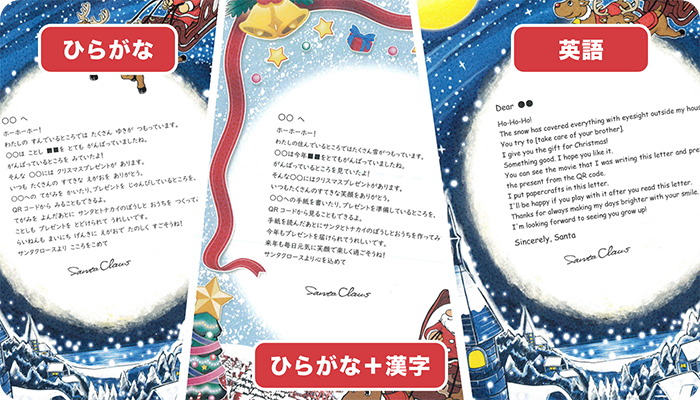 ひらがな
○○ へ
ホーホーホー！
わたしの すんでいるところでは たくさん ゆきが つもっています。
○○は ことし ■■を とても がんばっていましたね。
がんばっているところを みていたよ！
そんな ○○には クリスマスプレゼントが あります。
いつも たくさんの すてきな えがおを ありがとう。
○○への てがみを かいたり、プレゼントを じゅんびしているところを、
QRコードから みることもできるよ。
てがみを よんだあとに サンタとトナカイのぼうしと おうちを つくって
ことしも プレゼントを とどけられて うれしいです。
らいねんも まいにち げんきに えがおで たのしく すごそうね！
サンタクロースより こころをこめて
Santa Claus
○○ へ
ホーホーホー！
わたしの住んでいるところではたくさん雪がつもっています。
○○は今年■■をとてもがんばっていましたね。
がんばっているところを見ていたよ！
そんな○○にはクリスマスプレゼントがあります。
いつもたくさんのすてきな笑顔をありがとう。
○○への手紙を書いたり、プレゼントを準備しているところを、
QRコードから見ることもできるよ。
手紙を読んだあとにサンタとトナカイのぼうしとおうちを作ってみ
今年もプレゼントを届けられてうれしいです。
来年も毎日元気に笑顔で楽しく過ごそうね！
サンタクロースより心を込めて
Santa Claus
ひらがな＋漢字
英語
Dear ●●
Ho-Ho-Ho!
The snow has covered everything with eyesight outside my hous
You try to {take care of your brother}.
I give you the gift for Christmas!
Something good. I hope you like it.
You can see the movie that I was writing this letter and prep
the present from the QR code.
I put papercrafts in this letter.
I'll be happy if you play with it after you read this letter.
Thanks for always making my days brighter with your smile.
I'm looking forward to seeing you grow up!
Sincerely, Santa
Santa Claus